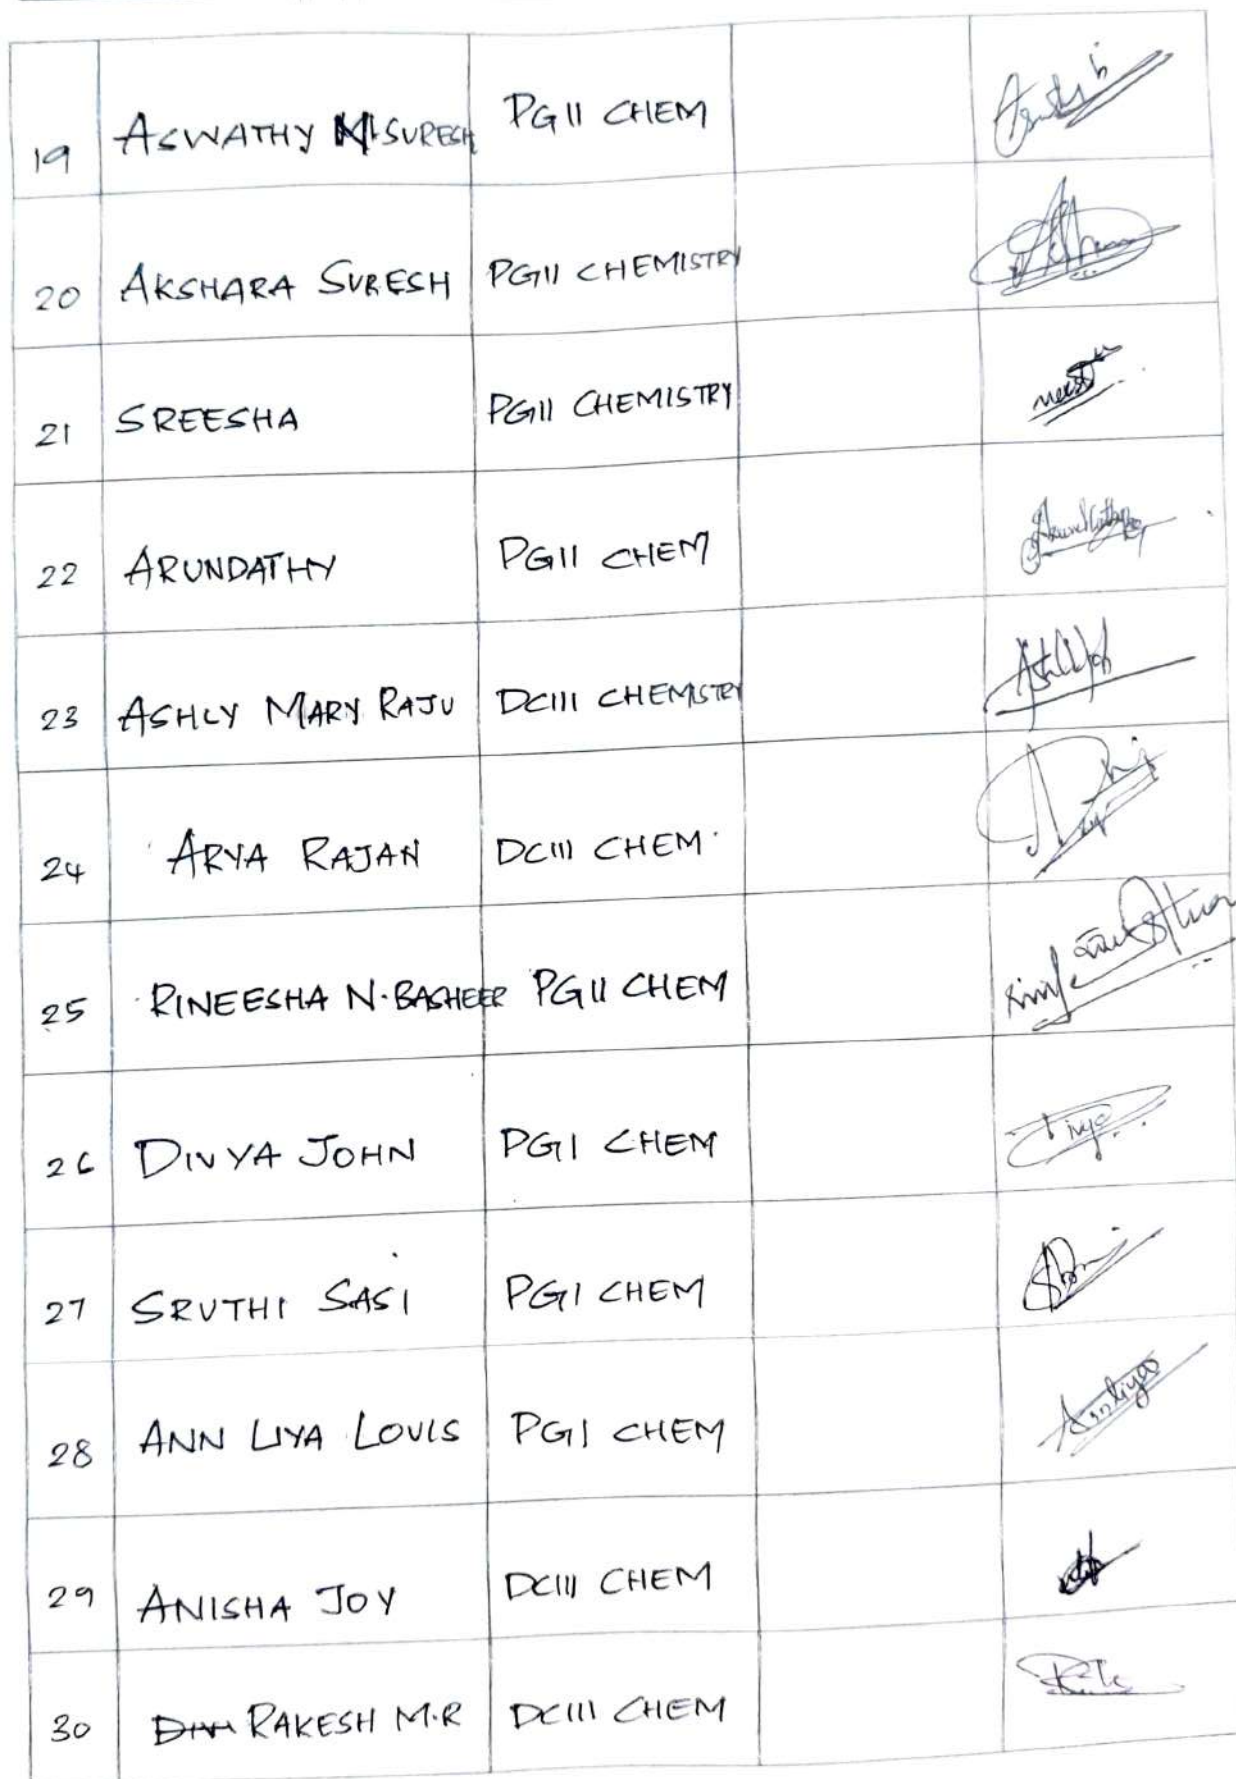 19 ASWATHY M SURESH PG II CHEM
20 AKSHARA SURESH PG II CHEMISTRY
21 SREESHA PG II CHEMISTRY
22 ARUNDATHY PG II CHEM
23 ASHLY MARY RAJU DC III CHEMISTRY
24 ARYA RAJAN DC III CHEM
25 RINEESHA N. BASHEER PG II CHEM
26 DIVYA JOHN PG I CHEM
27 SRUTHI SASI PG I CHEM
28 ANN LIYA LOUIS PG I CHEM
29 ANISHA JOY DC III CHEM
30 RAKESH M.R DC III CHEM